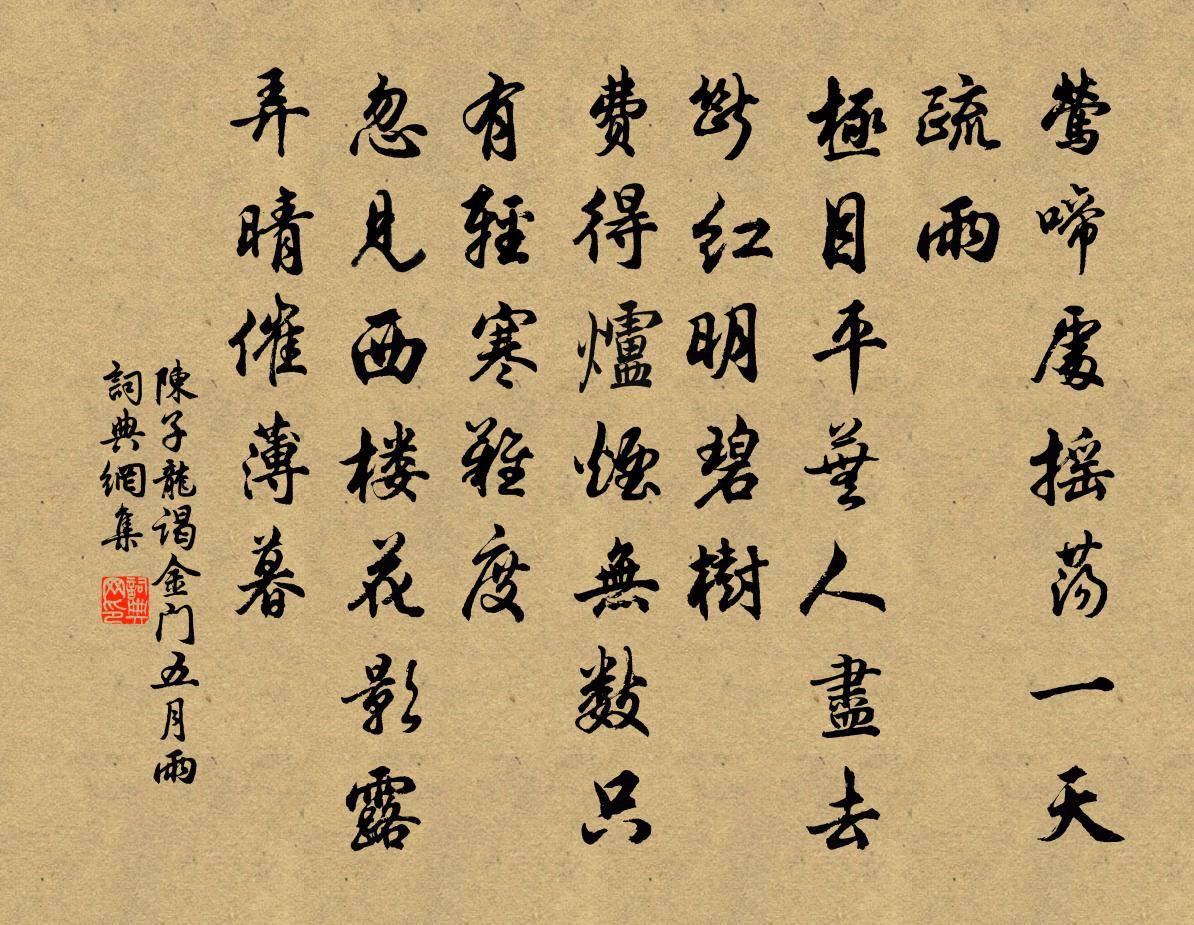 鶯啼處摇荡一天
疏雨
極目平蕪人盡去
斷红明碧樹
費得爐煙無數只
有輕寒難度
忽見西楼花影露
弄晴催薄暮
陳子龍谒金门五月雨
詞典網集
詞典网印